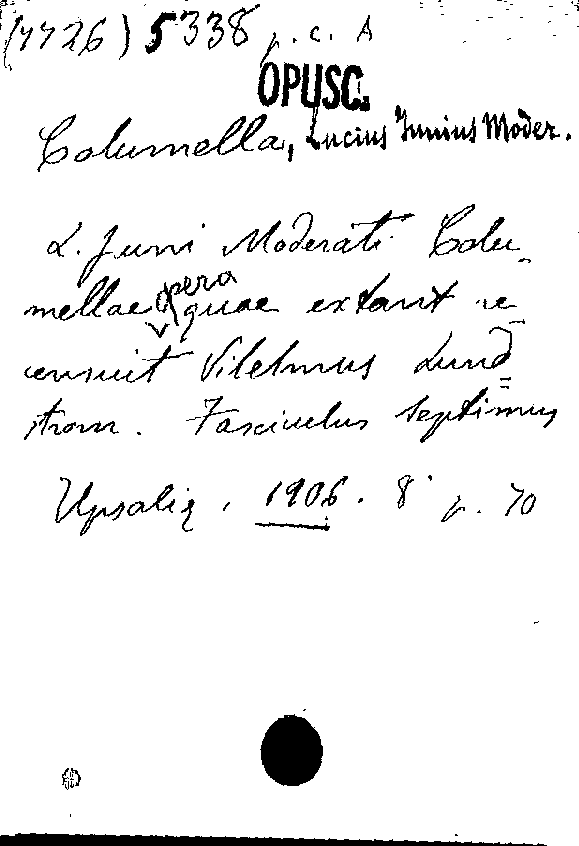 (7726) 5338 p. c. A
OPUSC.
Columella, Lucius Junius Moder.
L. Juni Moderati Colu-
mellae opera quae extant re-
censuit Vilelmus Lund=
strom. Fasciculus septimus
Upsalię, 1906. 8° p. 70